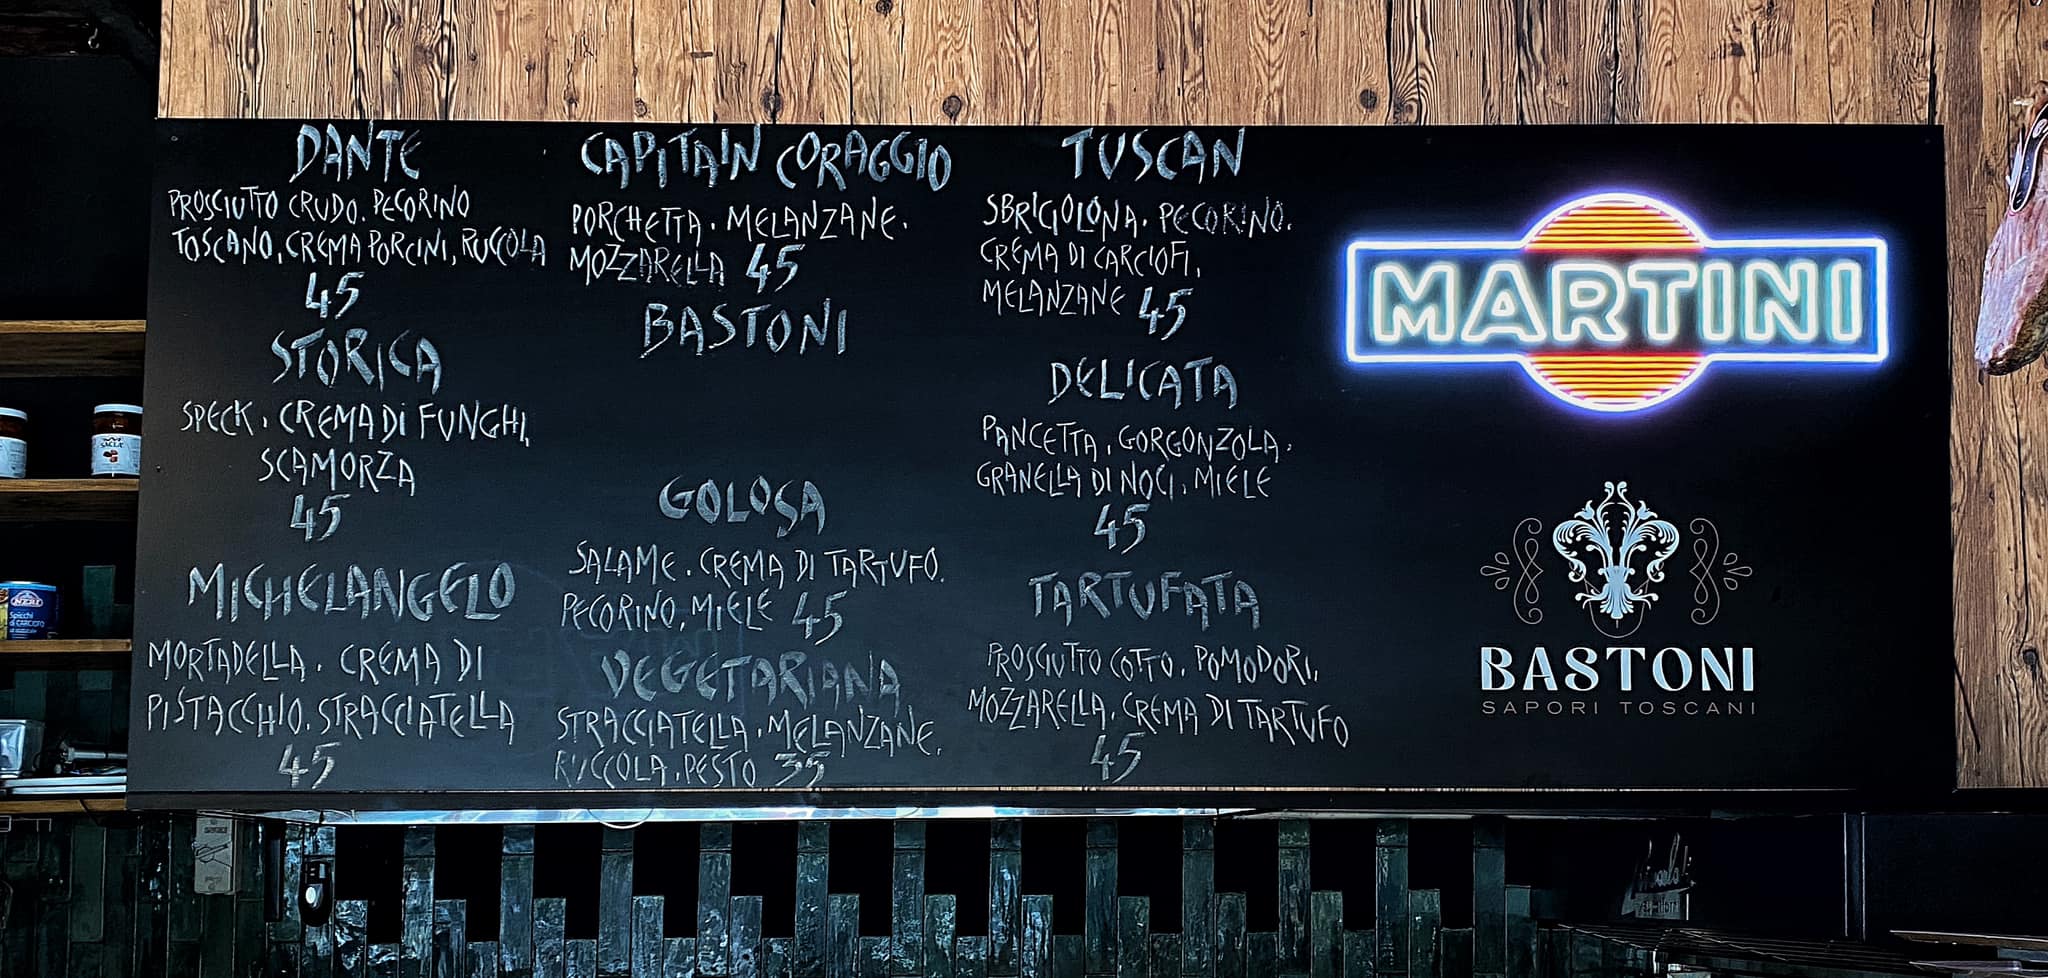 DANTE
PROSCIUTTO CRUDO. PECORINO
TOSCANO, CREMA PORCINI, RUCOLA
45
STORICA
SPECK. CREMA DI FUNGHI,
SCAMORZA
45
MICHELANGELO
MORTADELLA. CREMA DI
PISTACCHIO. STRACCIATELLA
45
CAPITAIN CORAGGIO
PORCHETTA. MELANZANE.
MOZZARELLA 45
BASTONI
GOLOSA
SALAME. CREMA DI TARTUFO.
PECORINO, MIELE 45
VEGETARIANA
STRACCIATELLA. MELANZANE.
RUCCOLA. PESTO 35
TUSCAN
SBRIGIOLONA. PECORINO.
CREMA DI CARCIOFI,
MELANZANE 45
DELICATA
PANCETTA, GORGONZOLA.
GRANELLA DI NOCI, MIELE
45
TARTUFATA
PROSCIUTTO COTTO. POMODORI,
MOZZARELLA, CREMA DI TARTUFO
45
MARTINI
BASTONI
SAPORI TOSCANI
SACLÀ
NERI
Spicchi
di CARCIOFO